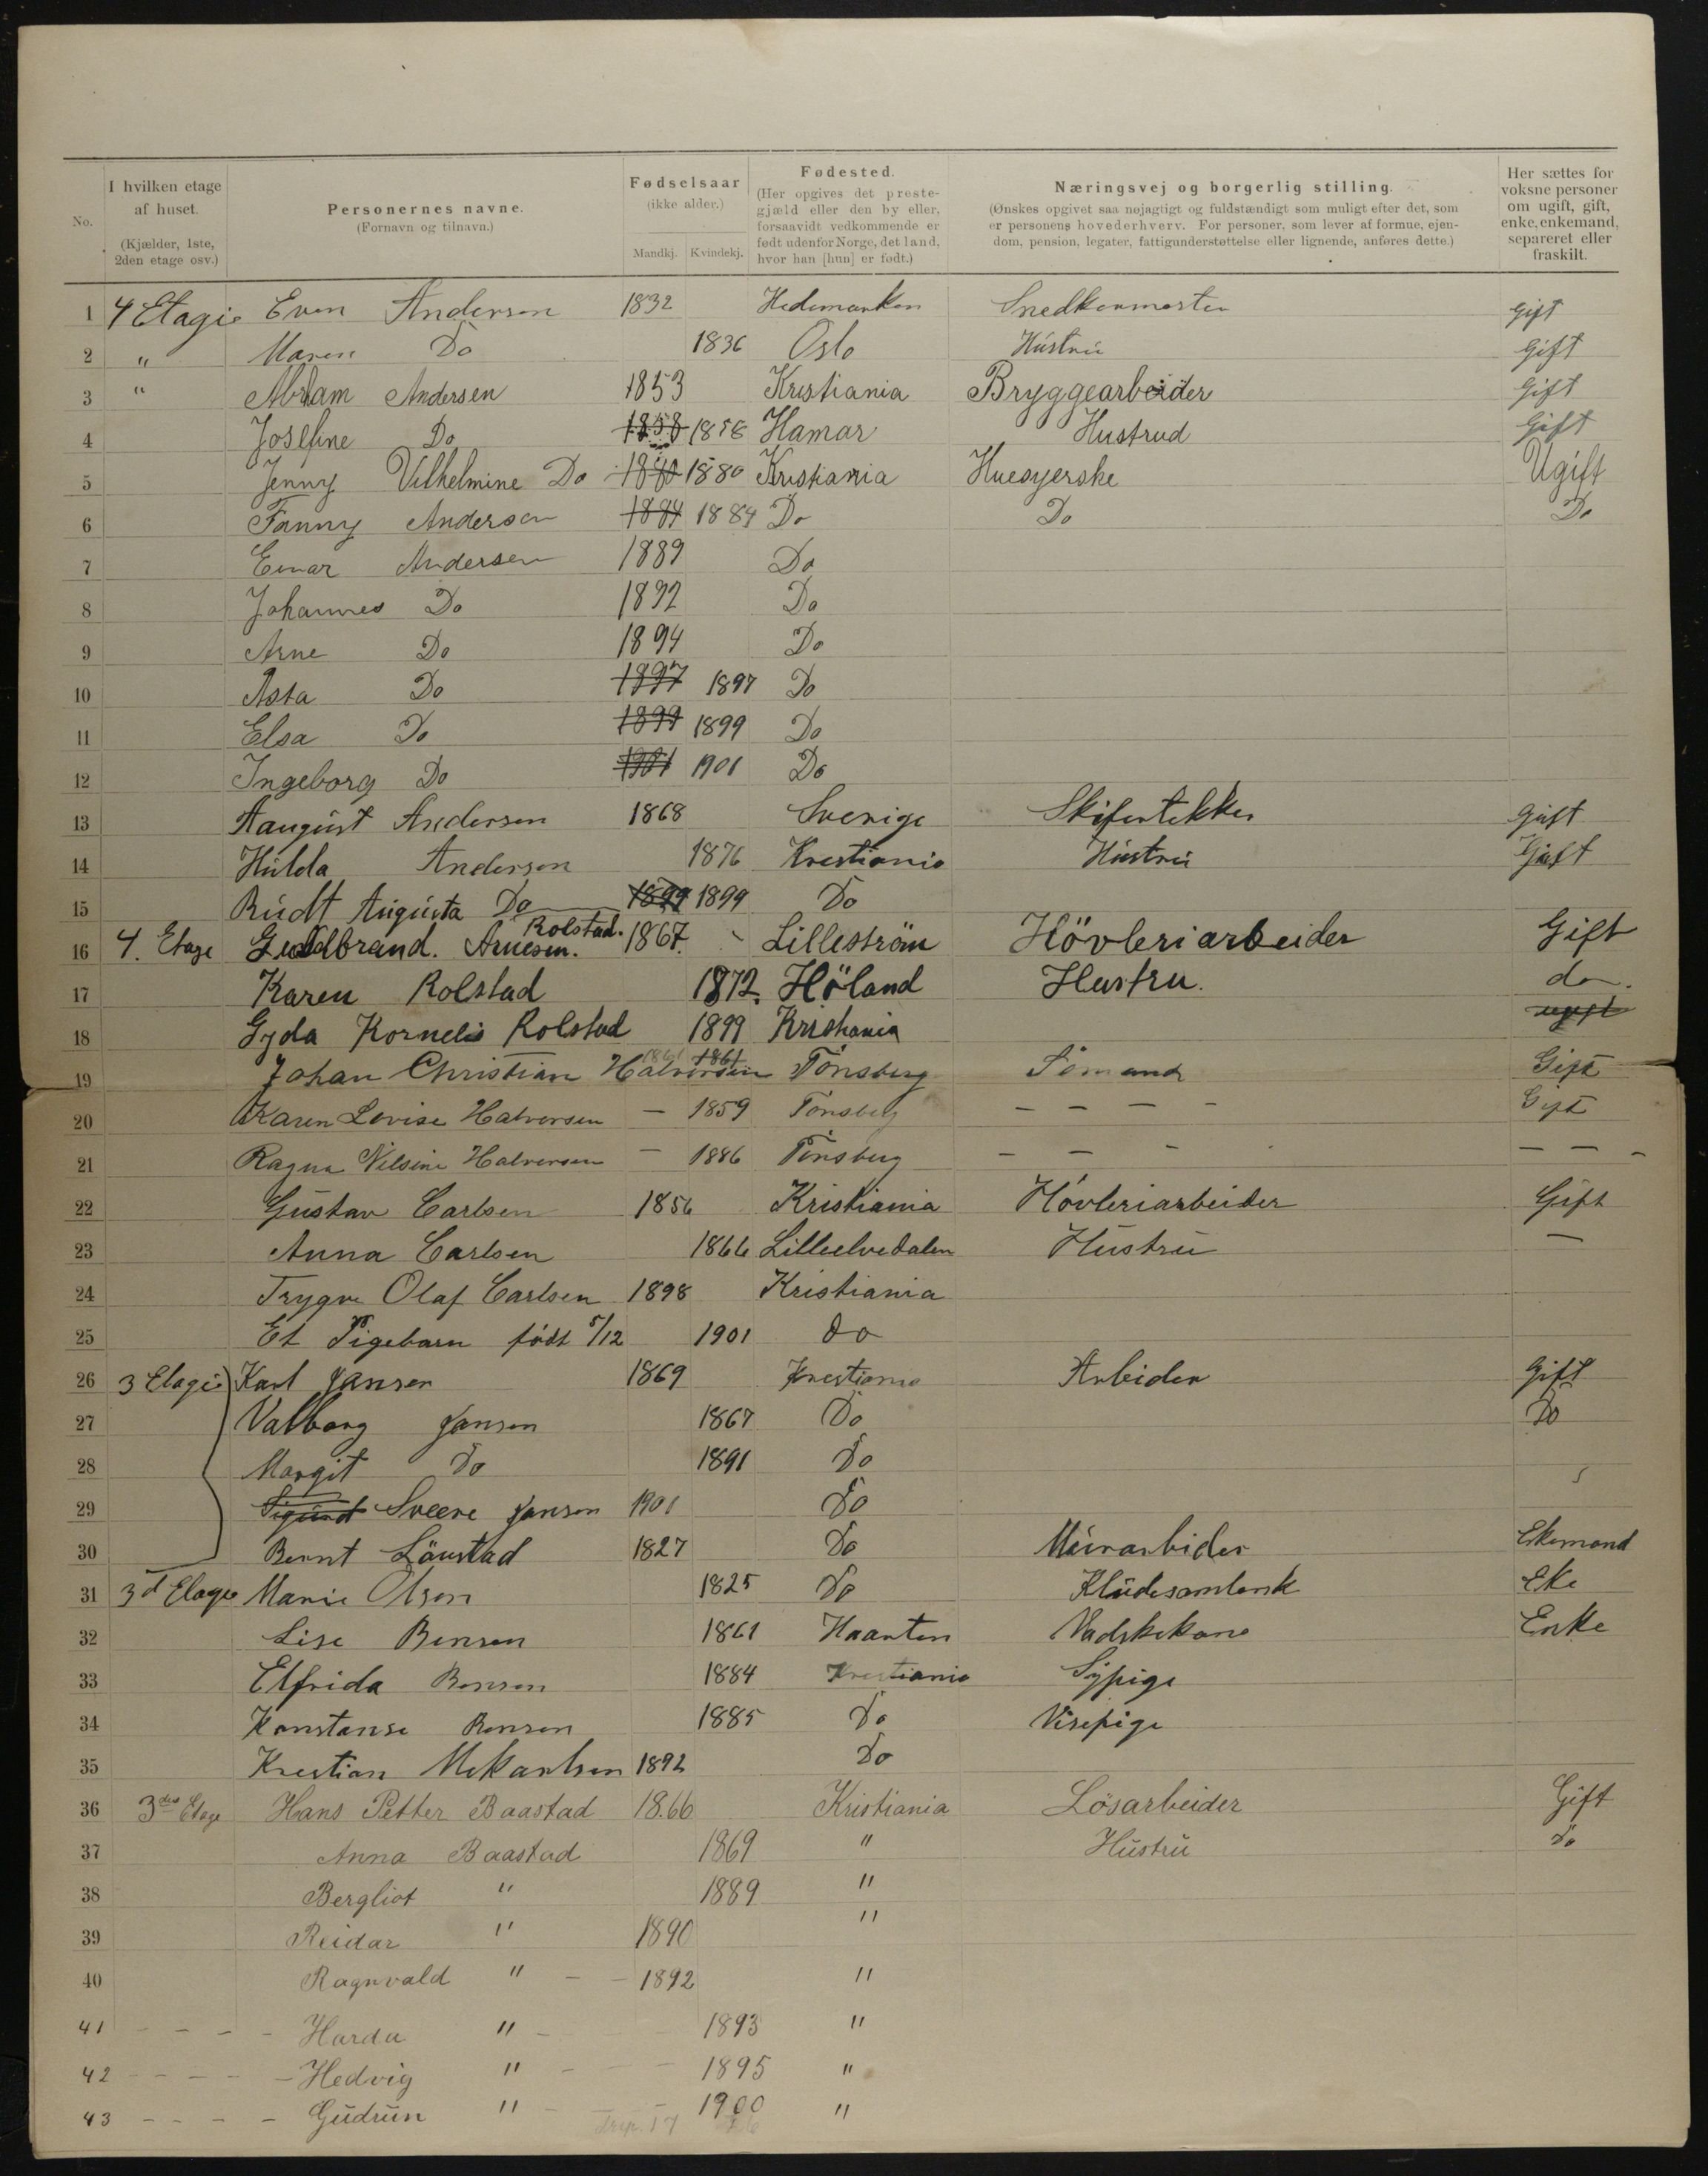 No.
I hvilken etage af huset. (Kjælder, 1ste, 2den etage osv.)
Personernes navne. (Fornavn og tilnavn.)
Fødselsaar (ikke alder.) Mandkj. Kvindekj.
Fødested. (Her opgives det prestegjæld eller den by eller, forsaavidt vedkommende er født udenfor Norge, det land, hvor han [hun] er født.)
Næringsvej og borgerlig stilling. (Ønskes opgivet saa nøjagtigt og fuldstændigt som muligt efter det, som er personens hovederhverv. For personer, som lever af formue, ejendom, pension, legater, fattigunderstøttelse eller lignende, anføres dette.)
Her sættes for voksne personer om ugift, gift, enke, enkemand, separeret eller fraskilt.
1 4 Etagie Even Andersen 1832 Hedemarken Snedkermester Gift
2 " Maren Do 1836 Oslo Hustru Gift
3 " Abrham Andersen 1853 Kristiania Bryggearbeider Gift
4 Josefine Do 1858 1858 Hamar Hustrud Gift
5 Jenny Vilhelmine Do 1880 1880 Kristiania Huesyerske Ugift
6 Fanny Andersen 1884 1884 Do Do Do
7 Einar Andersen 1889 Do
8 Johannes Do 1892 Do
9 Arne Do 1894 Do
10 Asta Do 1897 1897 Do
11 Elsa Do 1899 1899 Do
12 Ingeborg Do 1901 1901 Do
13 Aaugust Andersen 1868 Sverige Skifertekker Gift
14 Hulda Anderson 1876 Krestiania Hustru Gift
15 Rudt Augusta Do 1899 1899 Do
16 4. Etage Guldbrand. Arnesen. Rolstad. 1867. Lilleström Hövleriarbeider Gift
17 Karen Rolstad 1872. Höland Hustru. do.
18 Gyda Kornelis Rolstad 1899 Kristiania ugift
19 Johan Christian Halvorsen 1861 1861 Tönsberg Sömand Gift
20 Karen Lovise Halvorsen — 1859 Tönsberg — — — — Gift
21 Ragna Nilsine Halvorsen — 1886 Tönsberg — — — — — —
22 Gustav Carlsen 1856 Kristiania Hövleriarbeider Gift
23 Anna Carlsen 1866 Lilleelvedalen Hustru —
24 Trygve Olaf Carlsen 1898 Kristiania
25 Et Pigebarn født 5/12 1901 do
26 3 Etagie Karl Jansen 1869 Krestiania Arbeider Gift
27 Valborg Jansen 1867 Do Do
28 Margit Do 1891 Do
29 Sigurd Sverre Jansen 1901 Do
30 Bernt Lönstad 1827 Do Murarbider Ekemand
31 3d Etagie Marie Olsen 1825 Do Kludesamlersk Eke
32 Lise Bensen 1861 Vadskekone Enke
33 Elfrida Bensen 1884 Krestiania Sypige
34 Konstanse Bensen 1885 Do Visepige
35 Krestian 1892 Do
36 3die Etage Hans Petter Baastad 18.66 Kristiania Lösarbeider Gift
37 Anna Baastad 1869 " Hustru Do
38 Bergliot " 1889 "
39 Reidar " 1890 "
40 Ragnvald " — — 1892 "
41 — — — — Harda " — 1893 "
42 — — — — Hedvig " — — — 1895 "
43 — — — — Gudrun " — — — 1900 "